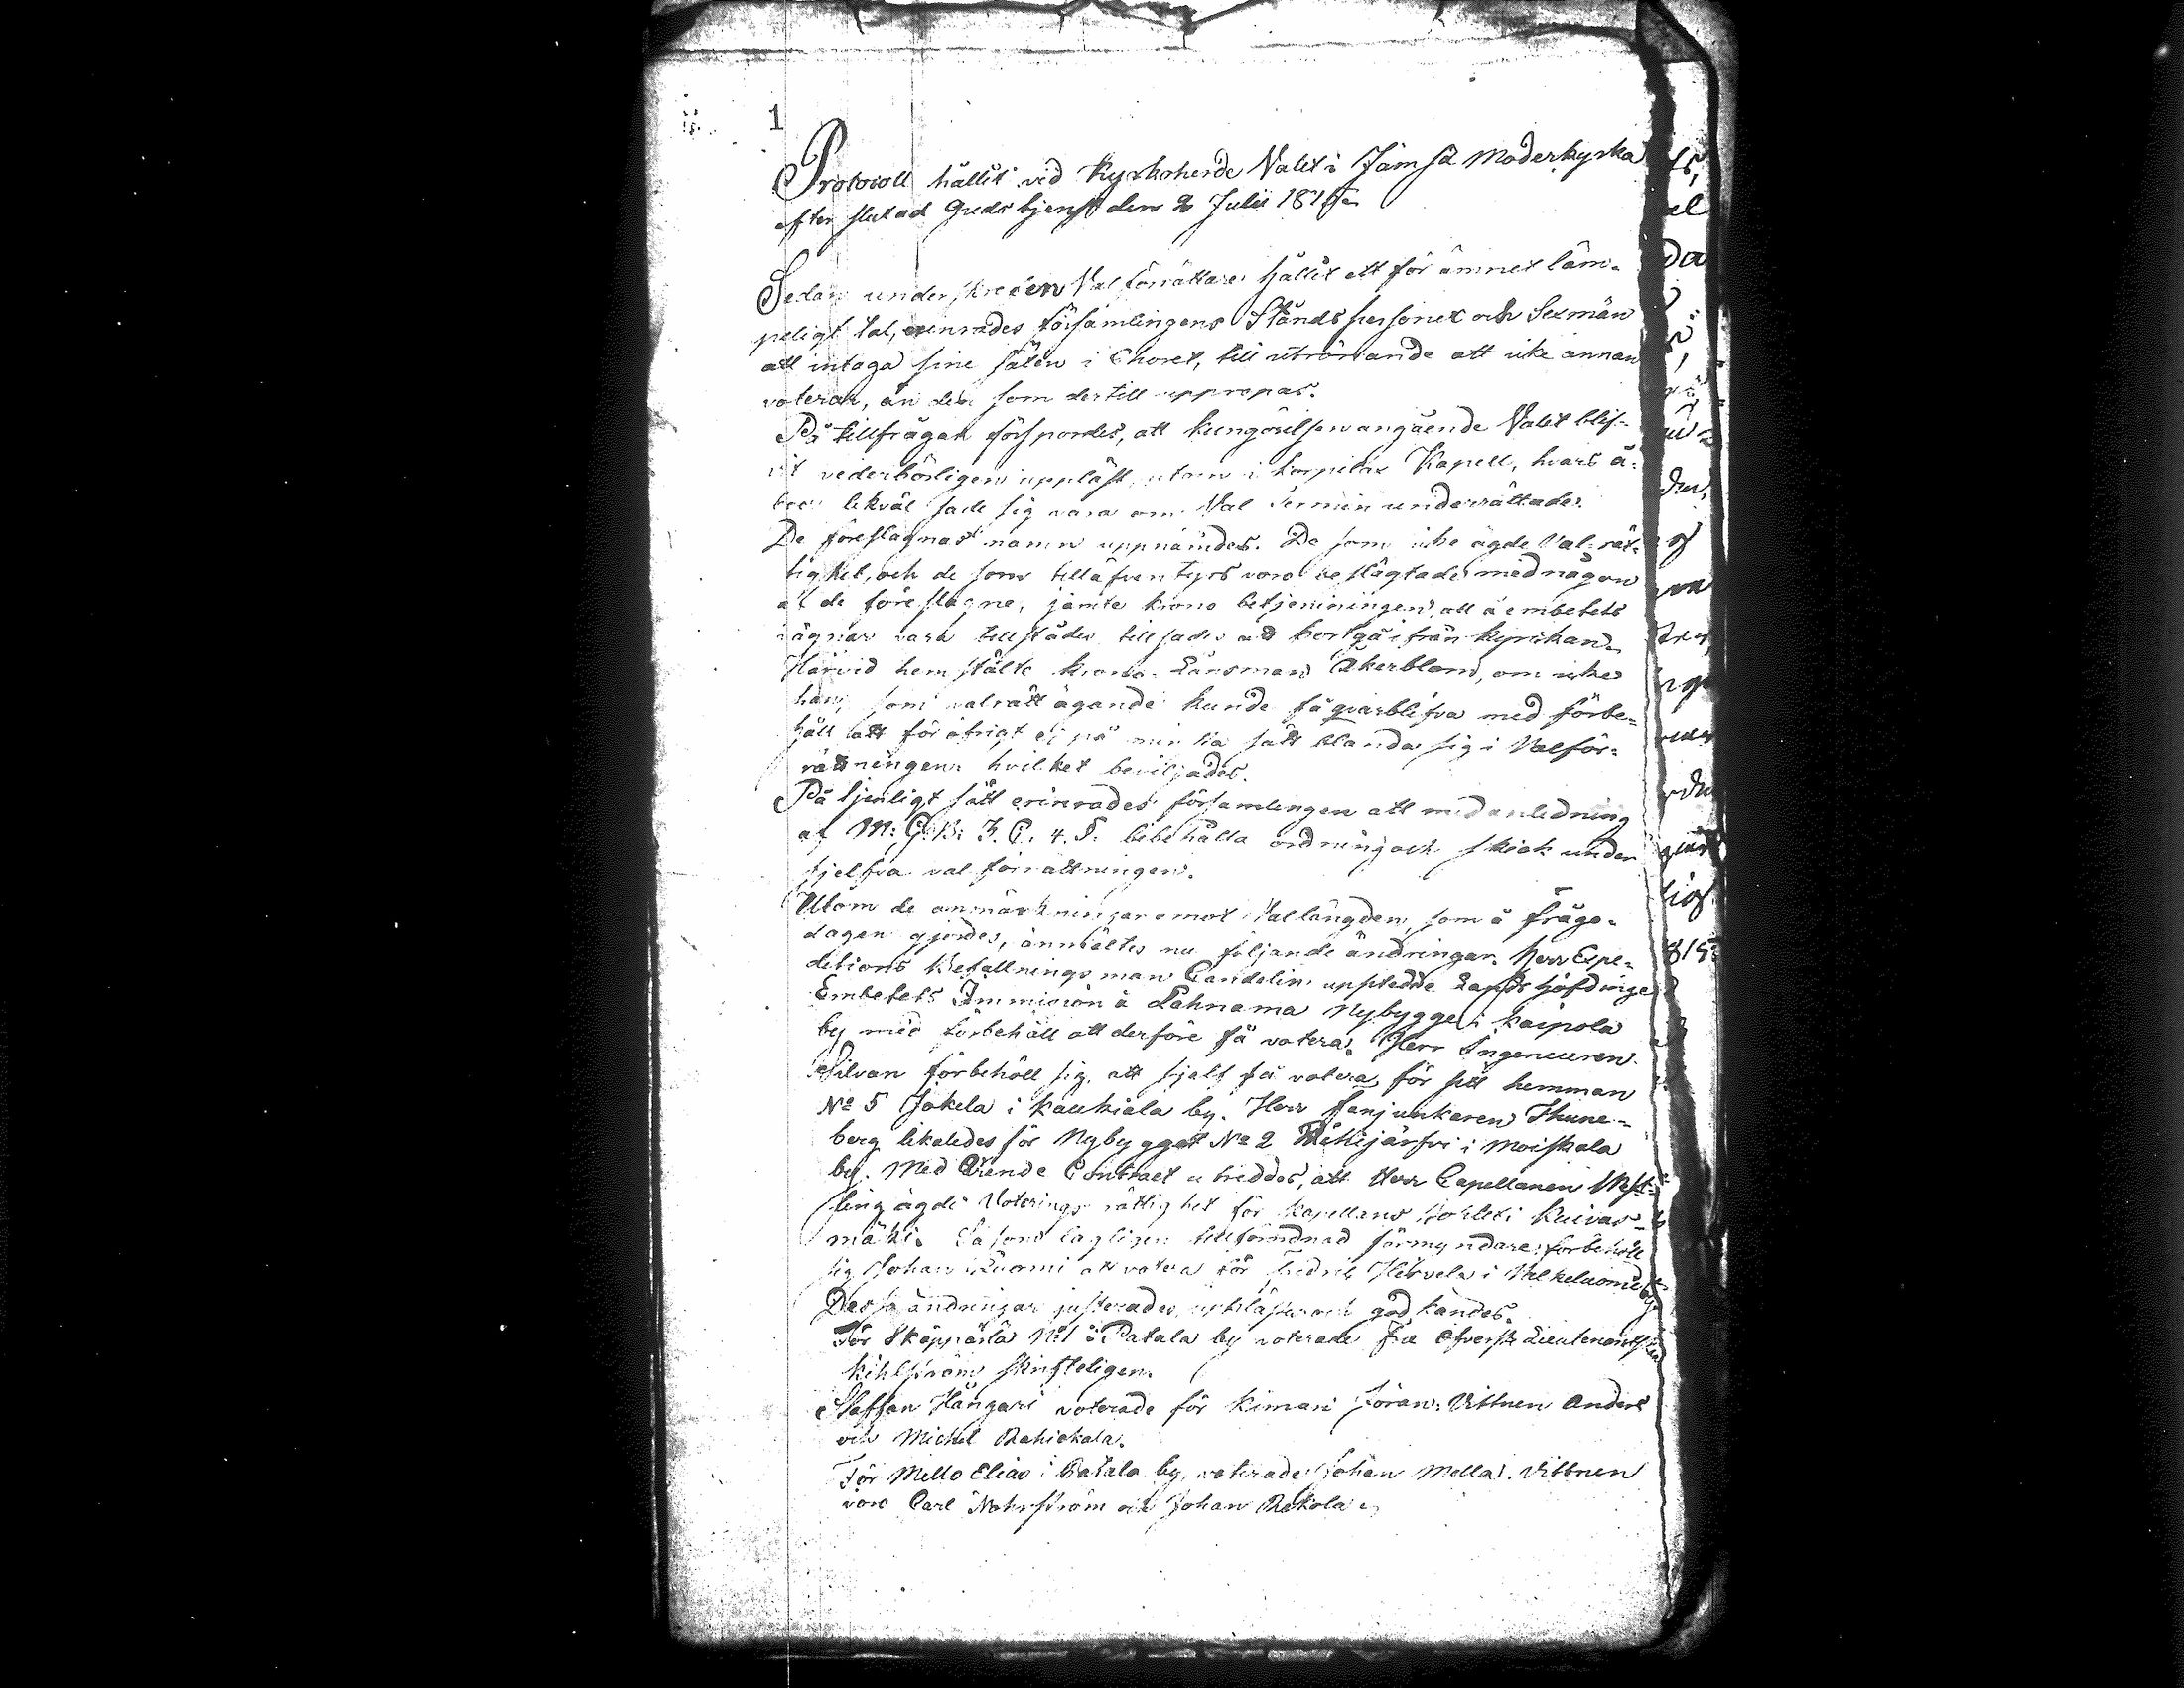 1
Protocoll hållit vid Kyrkoherde Valet i Jämsä Moderkyrka
efter slutad Gudstjenst den 2 Julii 1815
Sedan underskrefen Valförrättare hållit ett för ämnet läm-
peligt tal, erinrades församlingens Ståndspersoner och Sexmän
att intaga sine säten i Choret, till utrönande att icke annan
voterar, än den som dertill uppropas.
På tillfrågan förspordes, att kungörelsen angående Valet blif-
vit vederbörligen uppläst, utom i Korpilax Kapell, hvars å-
boer likväl sade sig vara om Val Termin underrättade.
De föreslagnas namn uppnämdes. De som icke ägde Val-rät-
tighet, och de som tilläfventyrs voro beslägtade med någon
af de föreslagne, jämte krono betjeningen, att å embetets
vägnar vara tillstädes, tillsades att bortgå ifrån kyrckan.
Härvid hemstälte krono Länsman Åkerblom, om icke
han, som valrätt ägande kunde få qvarblifva med förbe-
håll att för öfrigt ej på minsta sätt blanda sig i Valför-
rättningen hvilket beviljades.
På tjenligt sätt erinrades församlingen att med anledning
af M: G: B: 3. C. 4. §. bibehålla ordning och skick under
sjelfva val förrättningen.
Utom de anmärkningar emot Vallängden, som å fråge-
dagen gjordes, anmältes nu följande ändringar. Herr Expe-
ditions Befallningsman Candelin upptedde Landshöfdinge
Embetets Immission å Lahnama Nybygge i Kaipola
by med förbehåll att derföre få votera. Herr Ingenieuren
Silvan förbehöll sig, att sjelf få votera för sitt hemman
No 5 Jokela i Kaukiala by. Herr Fanjunkaren Thune-
berg likaledes för Nybygget No 2 i Moiskala
by. Med Contract utreddes, att Herr Capellanen West-
ling ägde Voterings rättighet för Kapellans bohlet i Kuivas-
mäki. Såsom lagligen tillförordnad förmyndare förbehöll
sig Johan Luomi att votera för Fredrik Hirvela i by
Dessa ändringar justerades, upplästes och godkändes.
För Skeppärlä No 1 i Patala by voterade Fru Öfverste Lieutenantskan
Kihlström skrifteligen.
Staffan Hangari voterade för Kimari Jöran. Vittnen Anders
och Michel
För Mello Elias i Patala by, voterade Johan Mella. Vittnen
voro Carl Nohrström och Johan
815